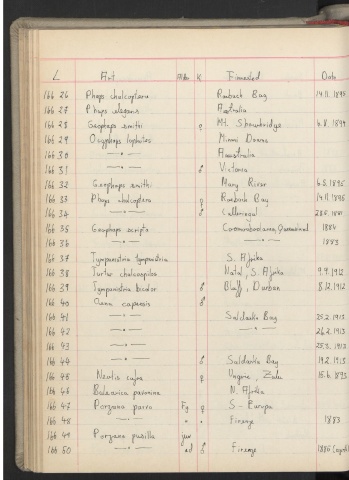 L Art Alder K Finnested Dato
166 26 Phaps chalcoptera Roebuck Bay 14.11.1895
166 27 Phaps elegans Australia
166 28 Geophaps smithi ♀ Mt. Shawbridge 4.8.1894
166 29 Ocyphaps lophotes Minni Downs
166 30 —"— Australia
166 31 —"— ♂ Victoria
166 32 Geophaps smithi Mary River 6.5.1895
166 33 Phaps chalcoptera ♀ Roebuck Bay 14.11.1895
166 34 —"— ♂
166 35 Geophaps scripta Queensland 1884
166 36 —"— 1883
166 37 Tympanistria tympanistria S. Afrika
166 38 Turtur chalcospilos Natal, S. Afrika 9.9.1912
166 39 Tympanistria bicolor ♂ Bluff, Durban 8.12.1912
166 40 Oena capensis ♂
166 41 —"— Saldanha Bay 25.2.1913
166 42 —"— —"— 26.2.1913
166 43 —"— 25.3.1913
166 44 —"— ♂ Saldanha Bay 19.2.1913
166 45 Neotis cafra ♀ Zulu 15.6.1893
166 46 Balearica pavonina N. Afrika
166 47 Porzana parva ♀ S-Europa
166 48 —"— " " Firenze 1883
166 49 Porzana pusilla juv
166 50 —"— ad ♂ Firenze 1886 (april)